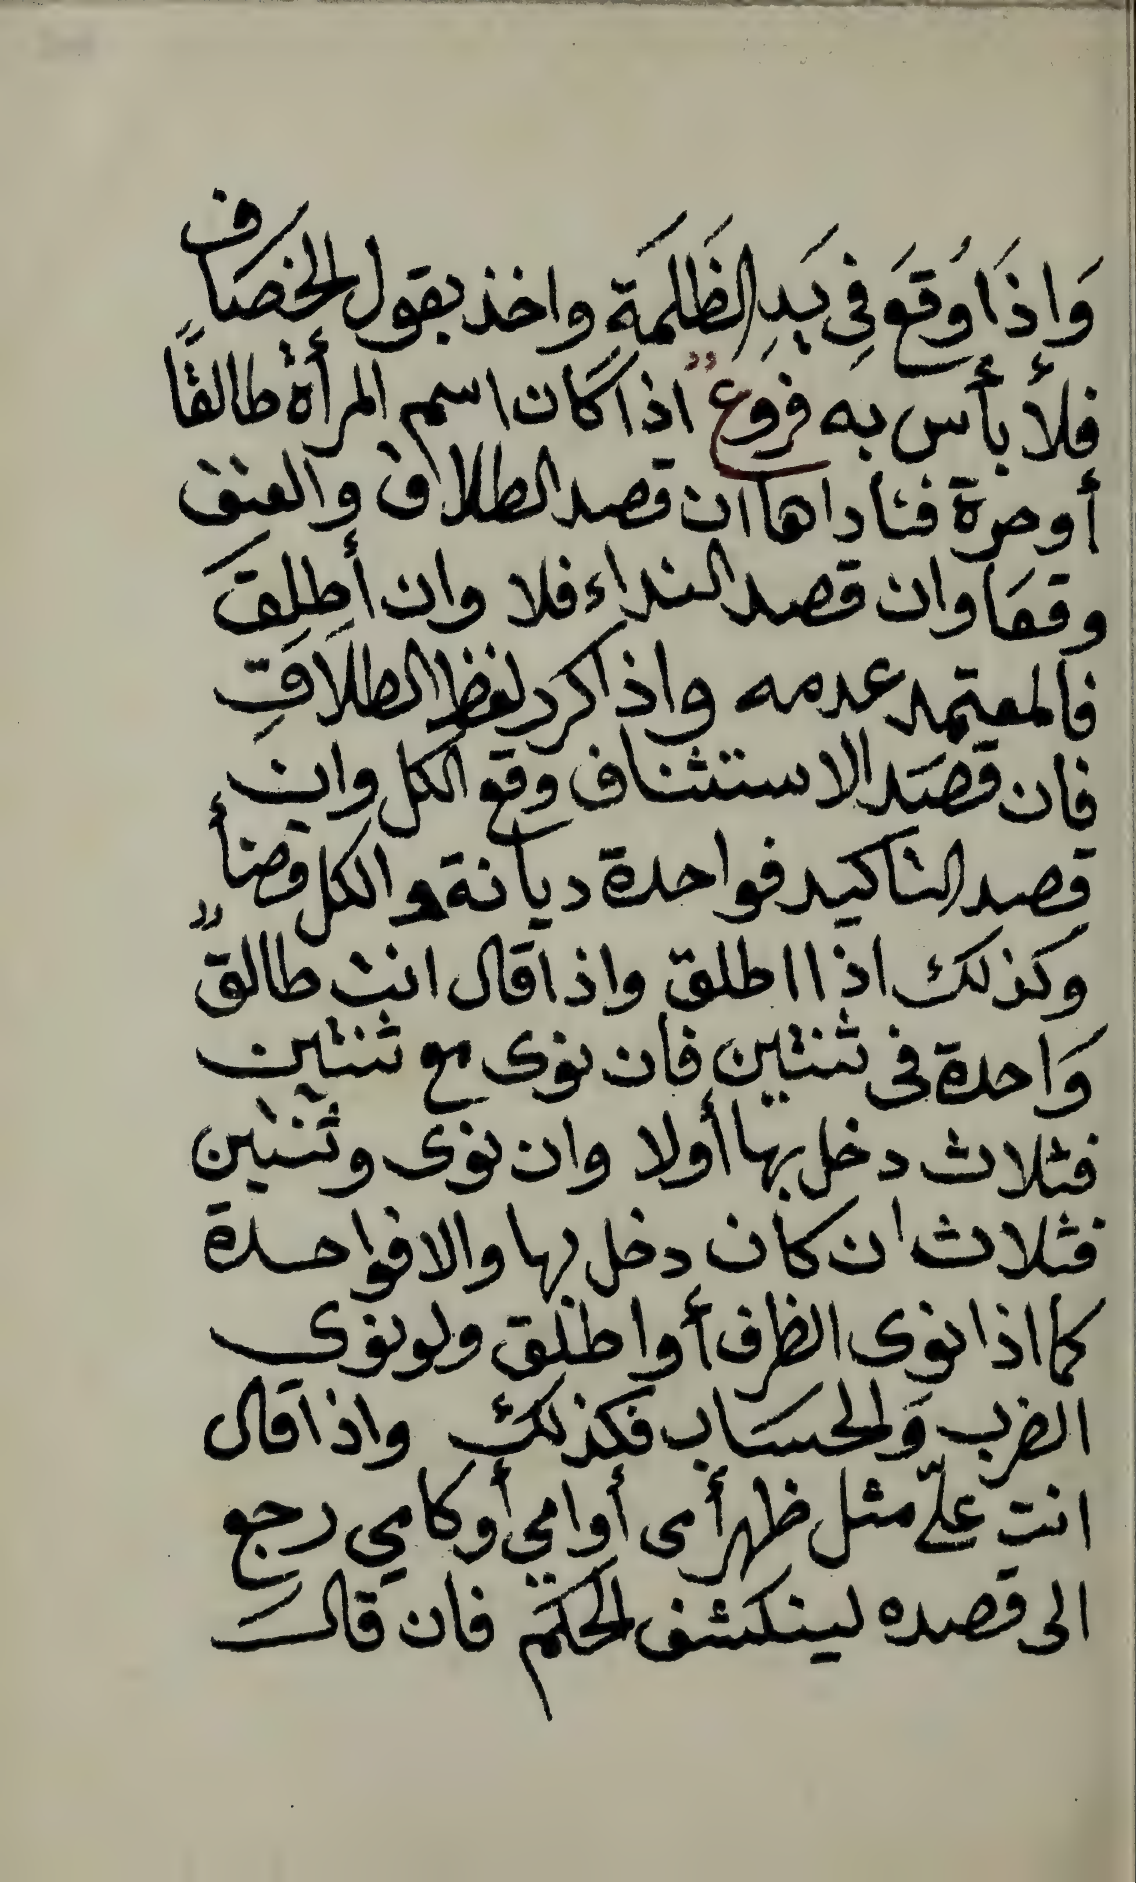 وَاذَا وُقَعَ فِي يَدِ الظَلَمَةِ واخذ بقول الخصاف
فلأ بأس به فروع اذا كان اسم المرأة طالقًا
أو حرة فنا داها ان قصد الطلاق والعتق
وقعا وان قصد النداء فلا وان أطلقَ
فالمعتمد عدمه واذا كرر لفظ الطلاقِ
فان قصَد الاستئناف وقع الكل وان
قصد التاكيد فواحدة ديانة والكل قضأ
وكذلك اذا اطلق واذا قال انت طالقٌ
وَاحدة فى ثنتين فان نوى مع ثنتين
فثلاث دخل بها أولا وان نوى وثنتين
فثلاث ان كان دخل بها والا فواحدة
كما اذا نوى الظرف أو اطلق ولو نوى
الضرب وَالحسَاب فكذلك واذا قال
انت علىّ مثل ظهر أمى أو امي أو كامي رجع
الى قصده لينكشف الحكم فان قال